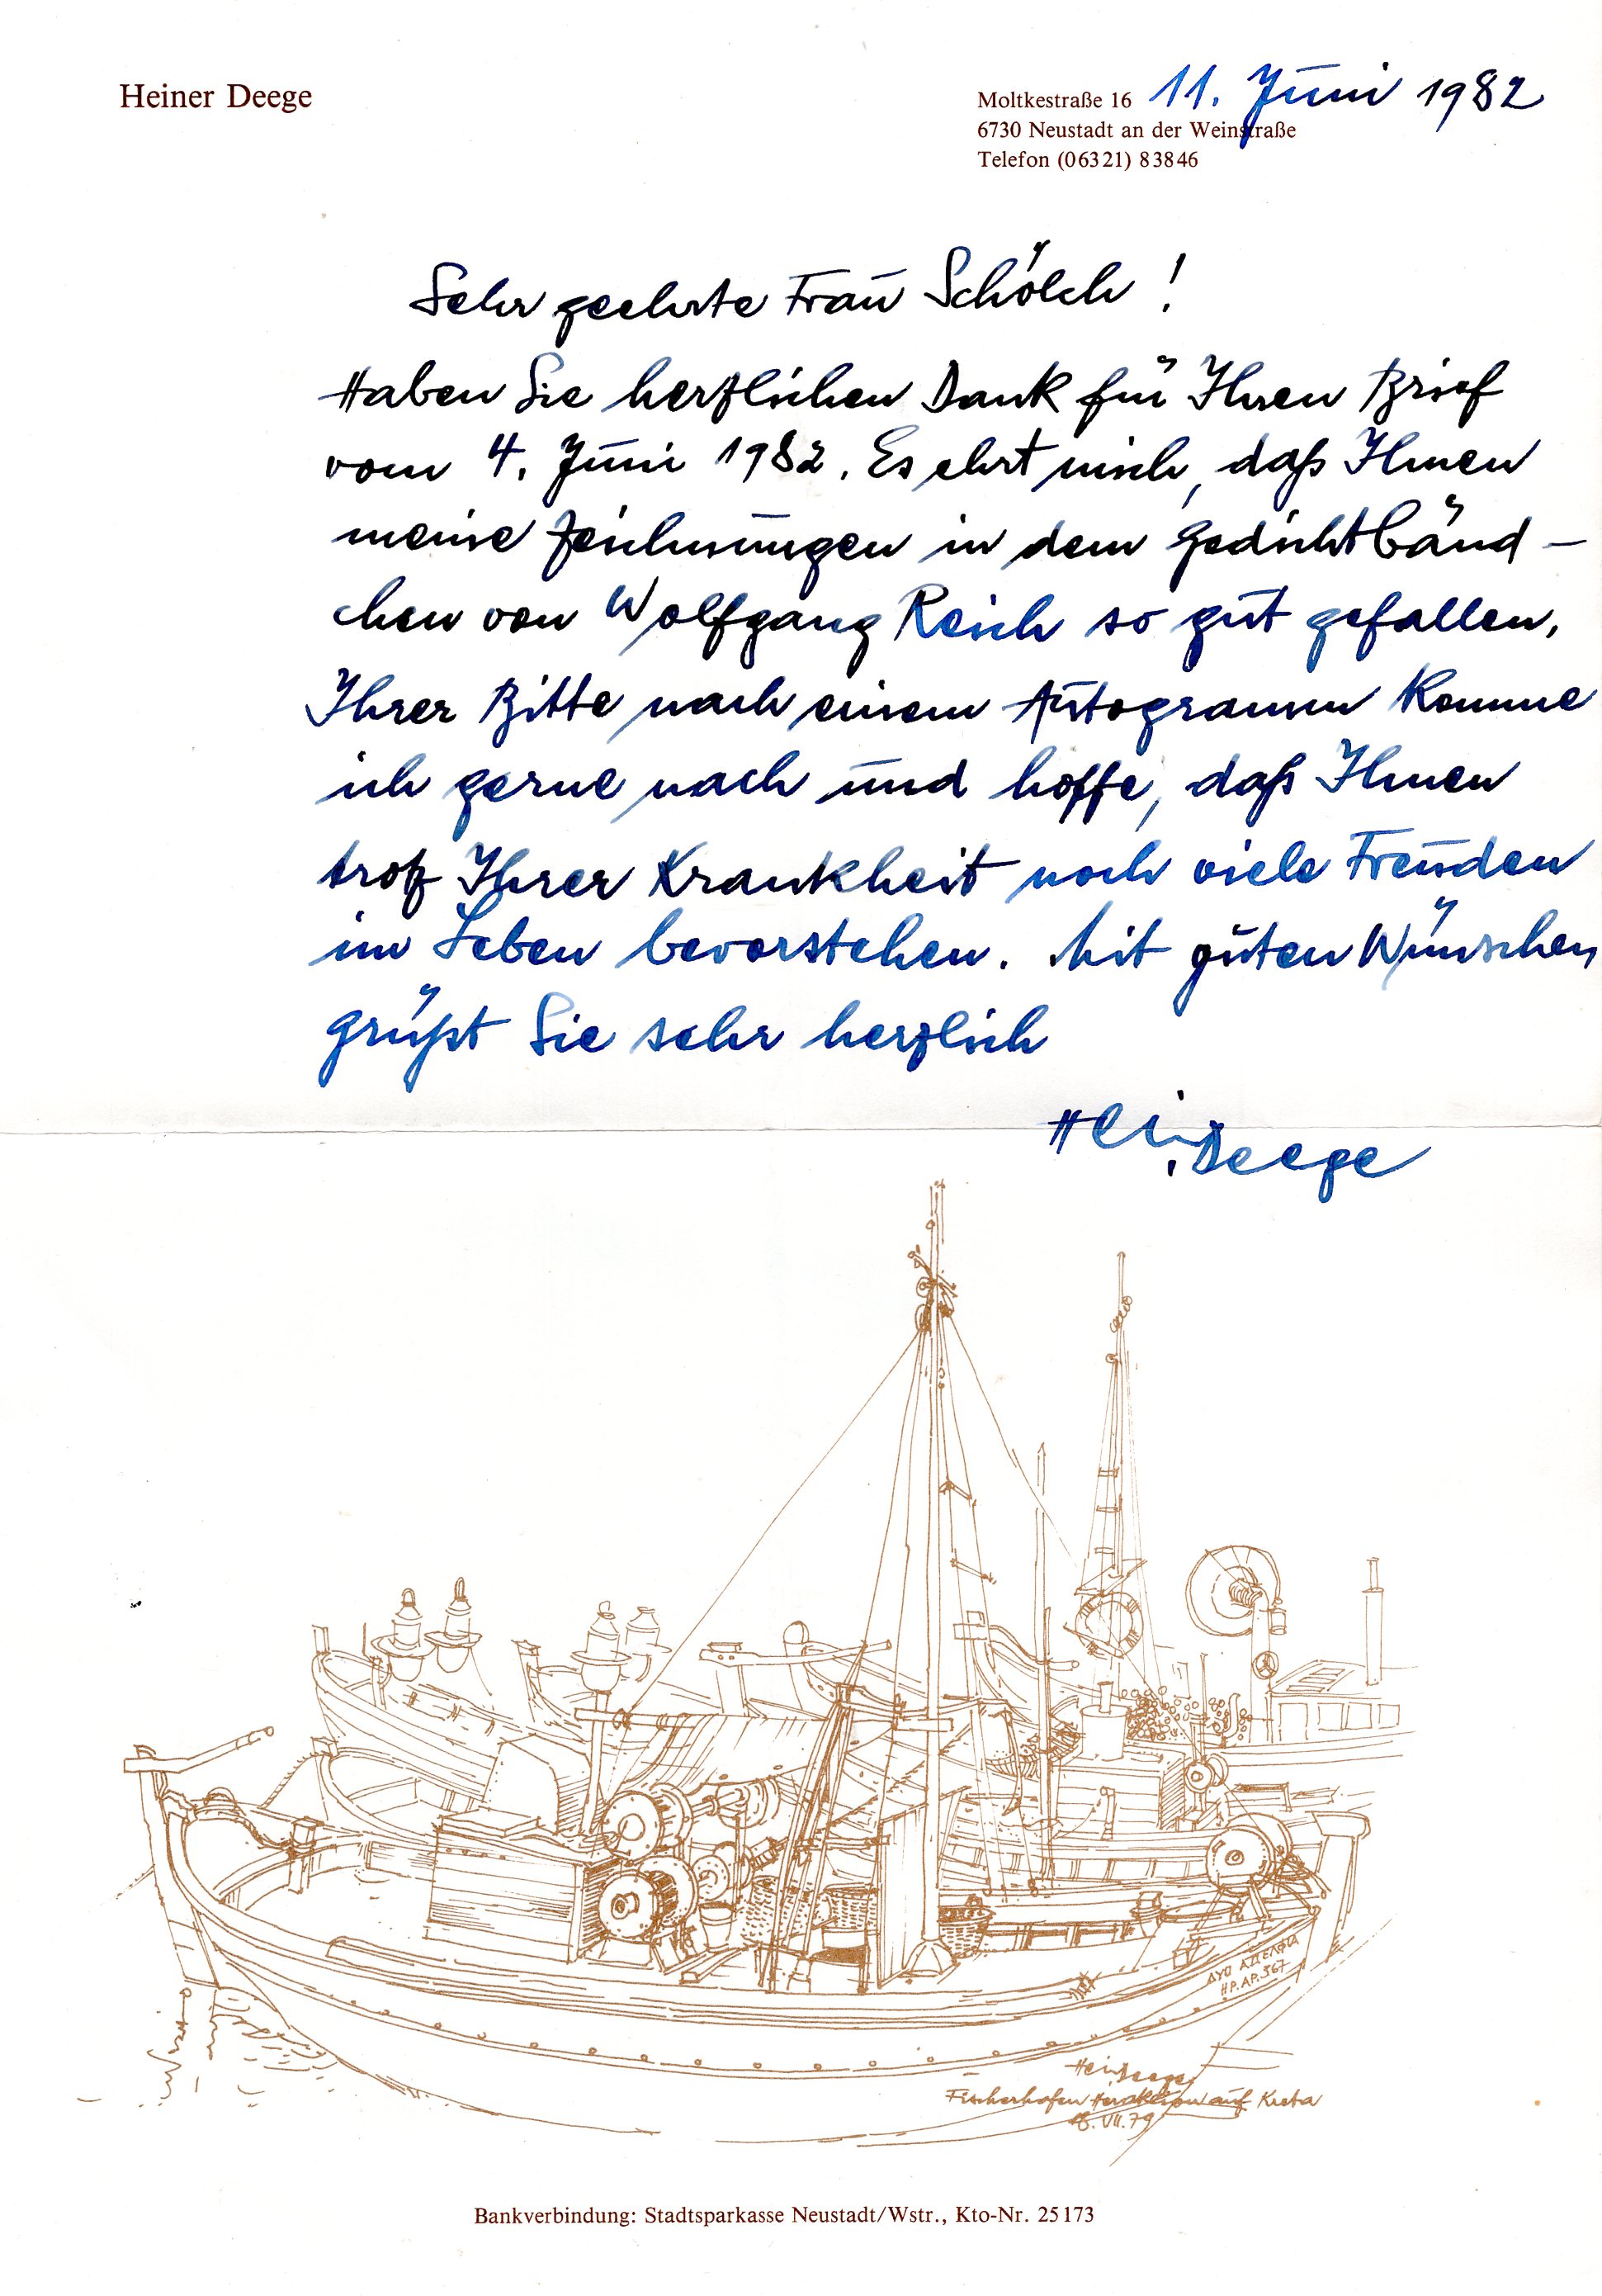 Heiner Deege
Moltkestraße 16
11. Juni 1982
6730 Neustadt an der Weinstraße
Telefon (06321) 83846
Sehr geehrte Frau Schölch !
Haben Sie herzlichen Dank für Ihren Brief
vom 4. Juni 1982. Es ehrt mich, daß Ihnen
meine Zeichnungen in dem Gedichtbänd-
chen von Wolfgang Reich so gut gefallen.
Ihrer Bitte nach einem Autogramm komme
ich gerne nach und hoffe, daß Ihnen
trotz Ihrer Krankheit noch viele Freuden
im Leben bevorstehen. Mit guten Wünschen
grüßt Sie sehr herzlich
Hein. Deege
ΔΥΟ ΑΔΕΛΦΙΑ
ΗΡ.ΑΡ.367
Hein Deege
Fischerhafen Heraklion auf Kreta
VII.79
Bankverbindung: Stadtsparkasse Neustadt/Wstr., Kto-Nr. 25173